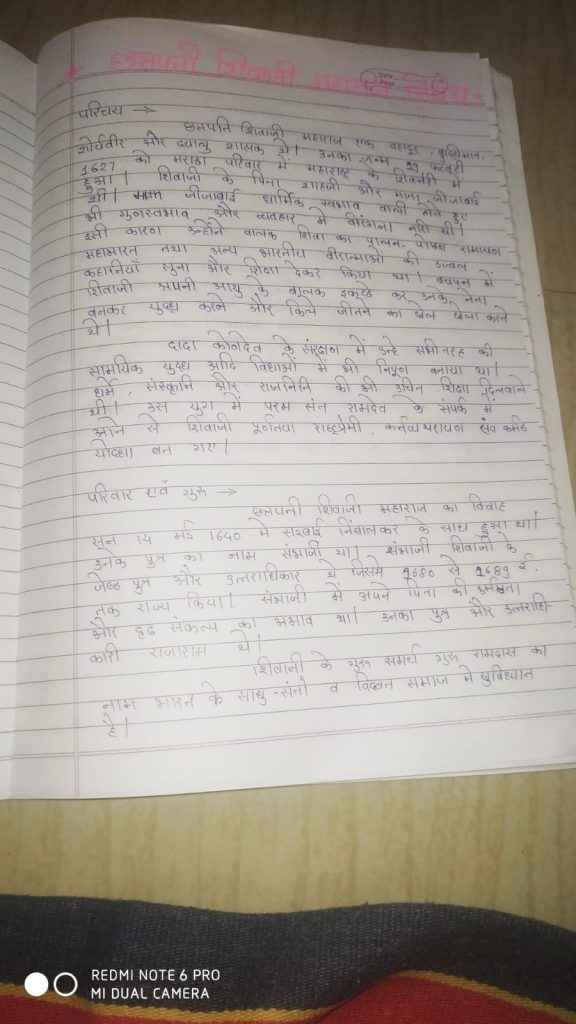 * छत्रपती शिवाजी महाराज निबंध *
Date
Page
परिचय →
छत्रपति शिवाजी महाराज एक बहादूर, बुध्दिमान,
शोर्यवीर और दयालु शासक थे। उनका जन्म 19 फरवरी
1627 को मराठा परिवार में महाराष्ट्र के शिवनेरी में
हुआ। शिवाजी के पिता शाहजी और माता जीजाबाई
थी। जीजाबाई धार्मिक स्वभाव वाली होते हुए
भी गुणस्वभाव और व्यवहार मे वीरंगना नारी थी।
इसी कारण उन्होंने बालक शिवा का पालन-पोषण रामायण
महाभारत तथा अन्य भारतीय वीरात्माओं की उज्वल
कहानियाँ सुना और शिक्षा देकर किया था। बचपन में
शिवाजी अपनी आयु के बालक इकट्ठे कर उनके नेता
बनकर युध्द करने और किले जीतने का खेल खेला करते
थे।
दादा कोणदेव के संरक्षण में उन्हे सभीतरह की
सामयिक युध्द आदि विद्याओं में भी निपूण बनाया था।
धर्म, संस्कृति और राजनिति की भी उचित शिक्षा दिलवाले
थी। उस युग में परम संत रामदेव के संपर्क में
आने से शिवाजी पूर्णतया राष्ट्रप्रेमी, कर्तव्यपरायण एंव कर्मठ
योध्दा बन गए।
परिवार एवं गुरु →
छत्रपती शिवाजी महाराज का विवाह
सन 14 मई 1640 मे सइबाई निंबालकर के साथ हुआ था।
उनके पुत्र का नाम संभाजी था। संभाजी शिवाजी के
जेष्ठ पुत्र और उत्तराधिकार थे जिसमे 1680 से 1689 ई.
तक राज्य किया। संभाजी में अपने पिता की कर्मठता
और दृढ संकल्प का अभाव था। उनका पुत्र और उत्तराधि-
कारी राजाराम थे।
शिवाजी के गुरु समर्थ गुरु रामदास का
नाम भारत के साधु-संतो व विद्वत समाज मे सुविख्यात
है।
REDMI NOTE 6 PRO
MI DUAL CAMERA